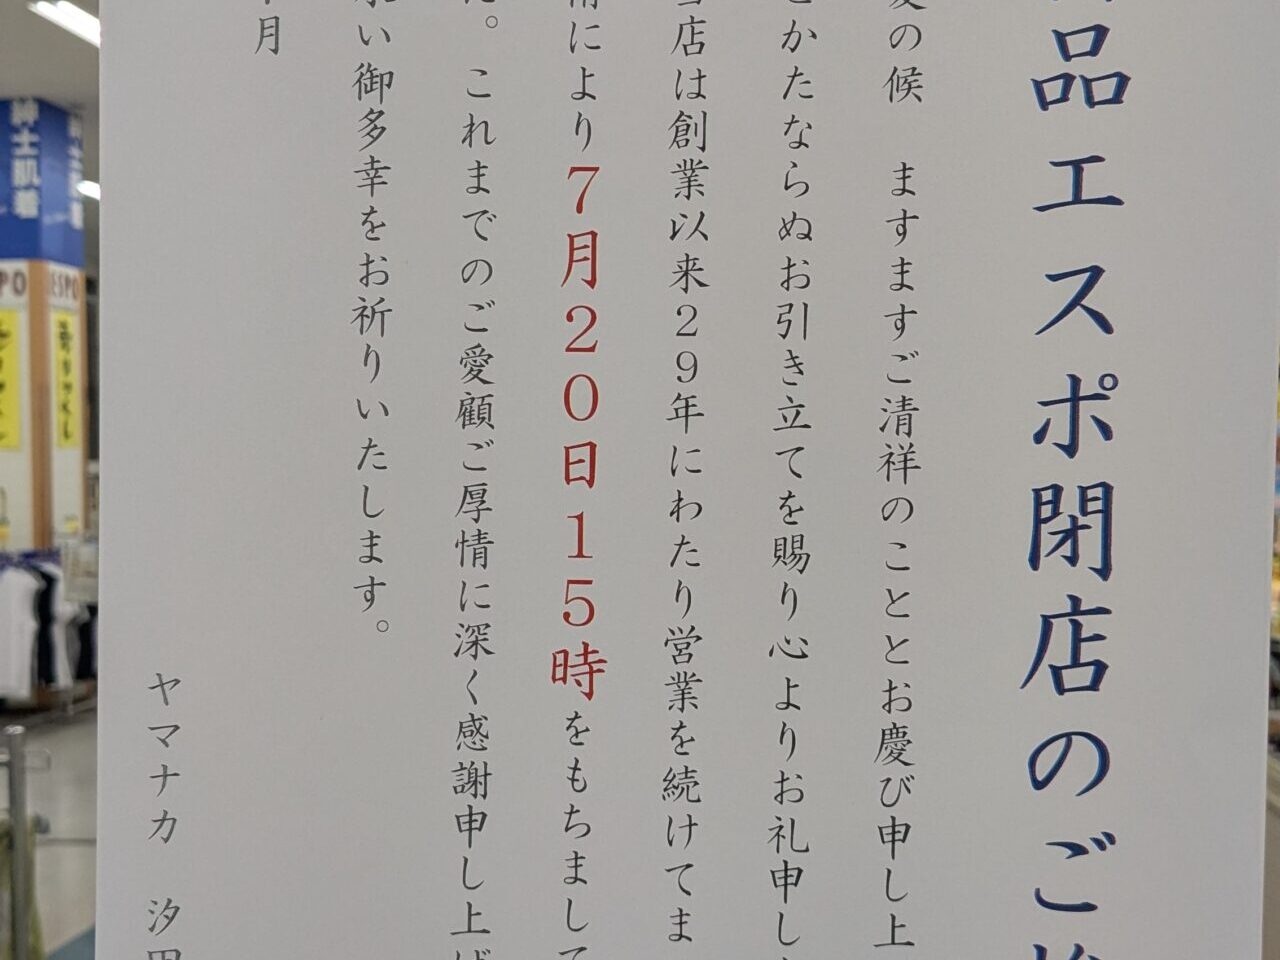 品エスポ閉店のご
の候　ますますご清祥のこととお慶び申し上
かたならぬお引き立てを賜り心よりお礼申し
店は創業以来29年にわたり営業を続けてま
により7月20日15時をもちまして
。これまでのご愛顧ご厚情に深く感謝申し上げ
い御多幸をお祈りいたします。
月
ヤマナカ　汐田
紳士肌着
ESPO